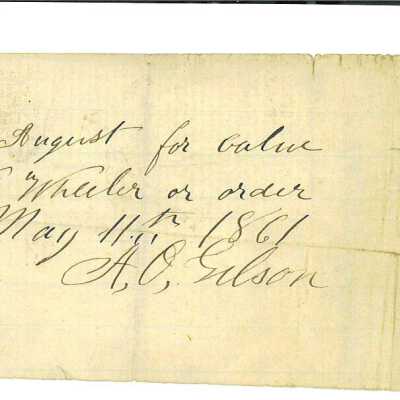 August for value
Wheeler or order
May 11th 1861
A. O. Gilson